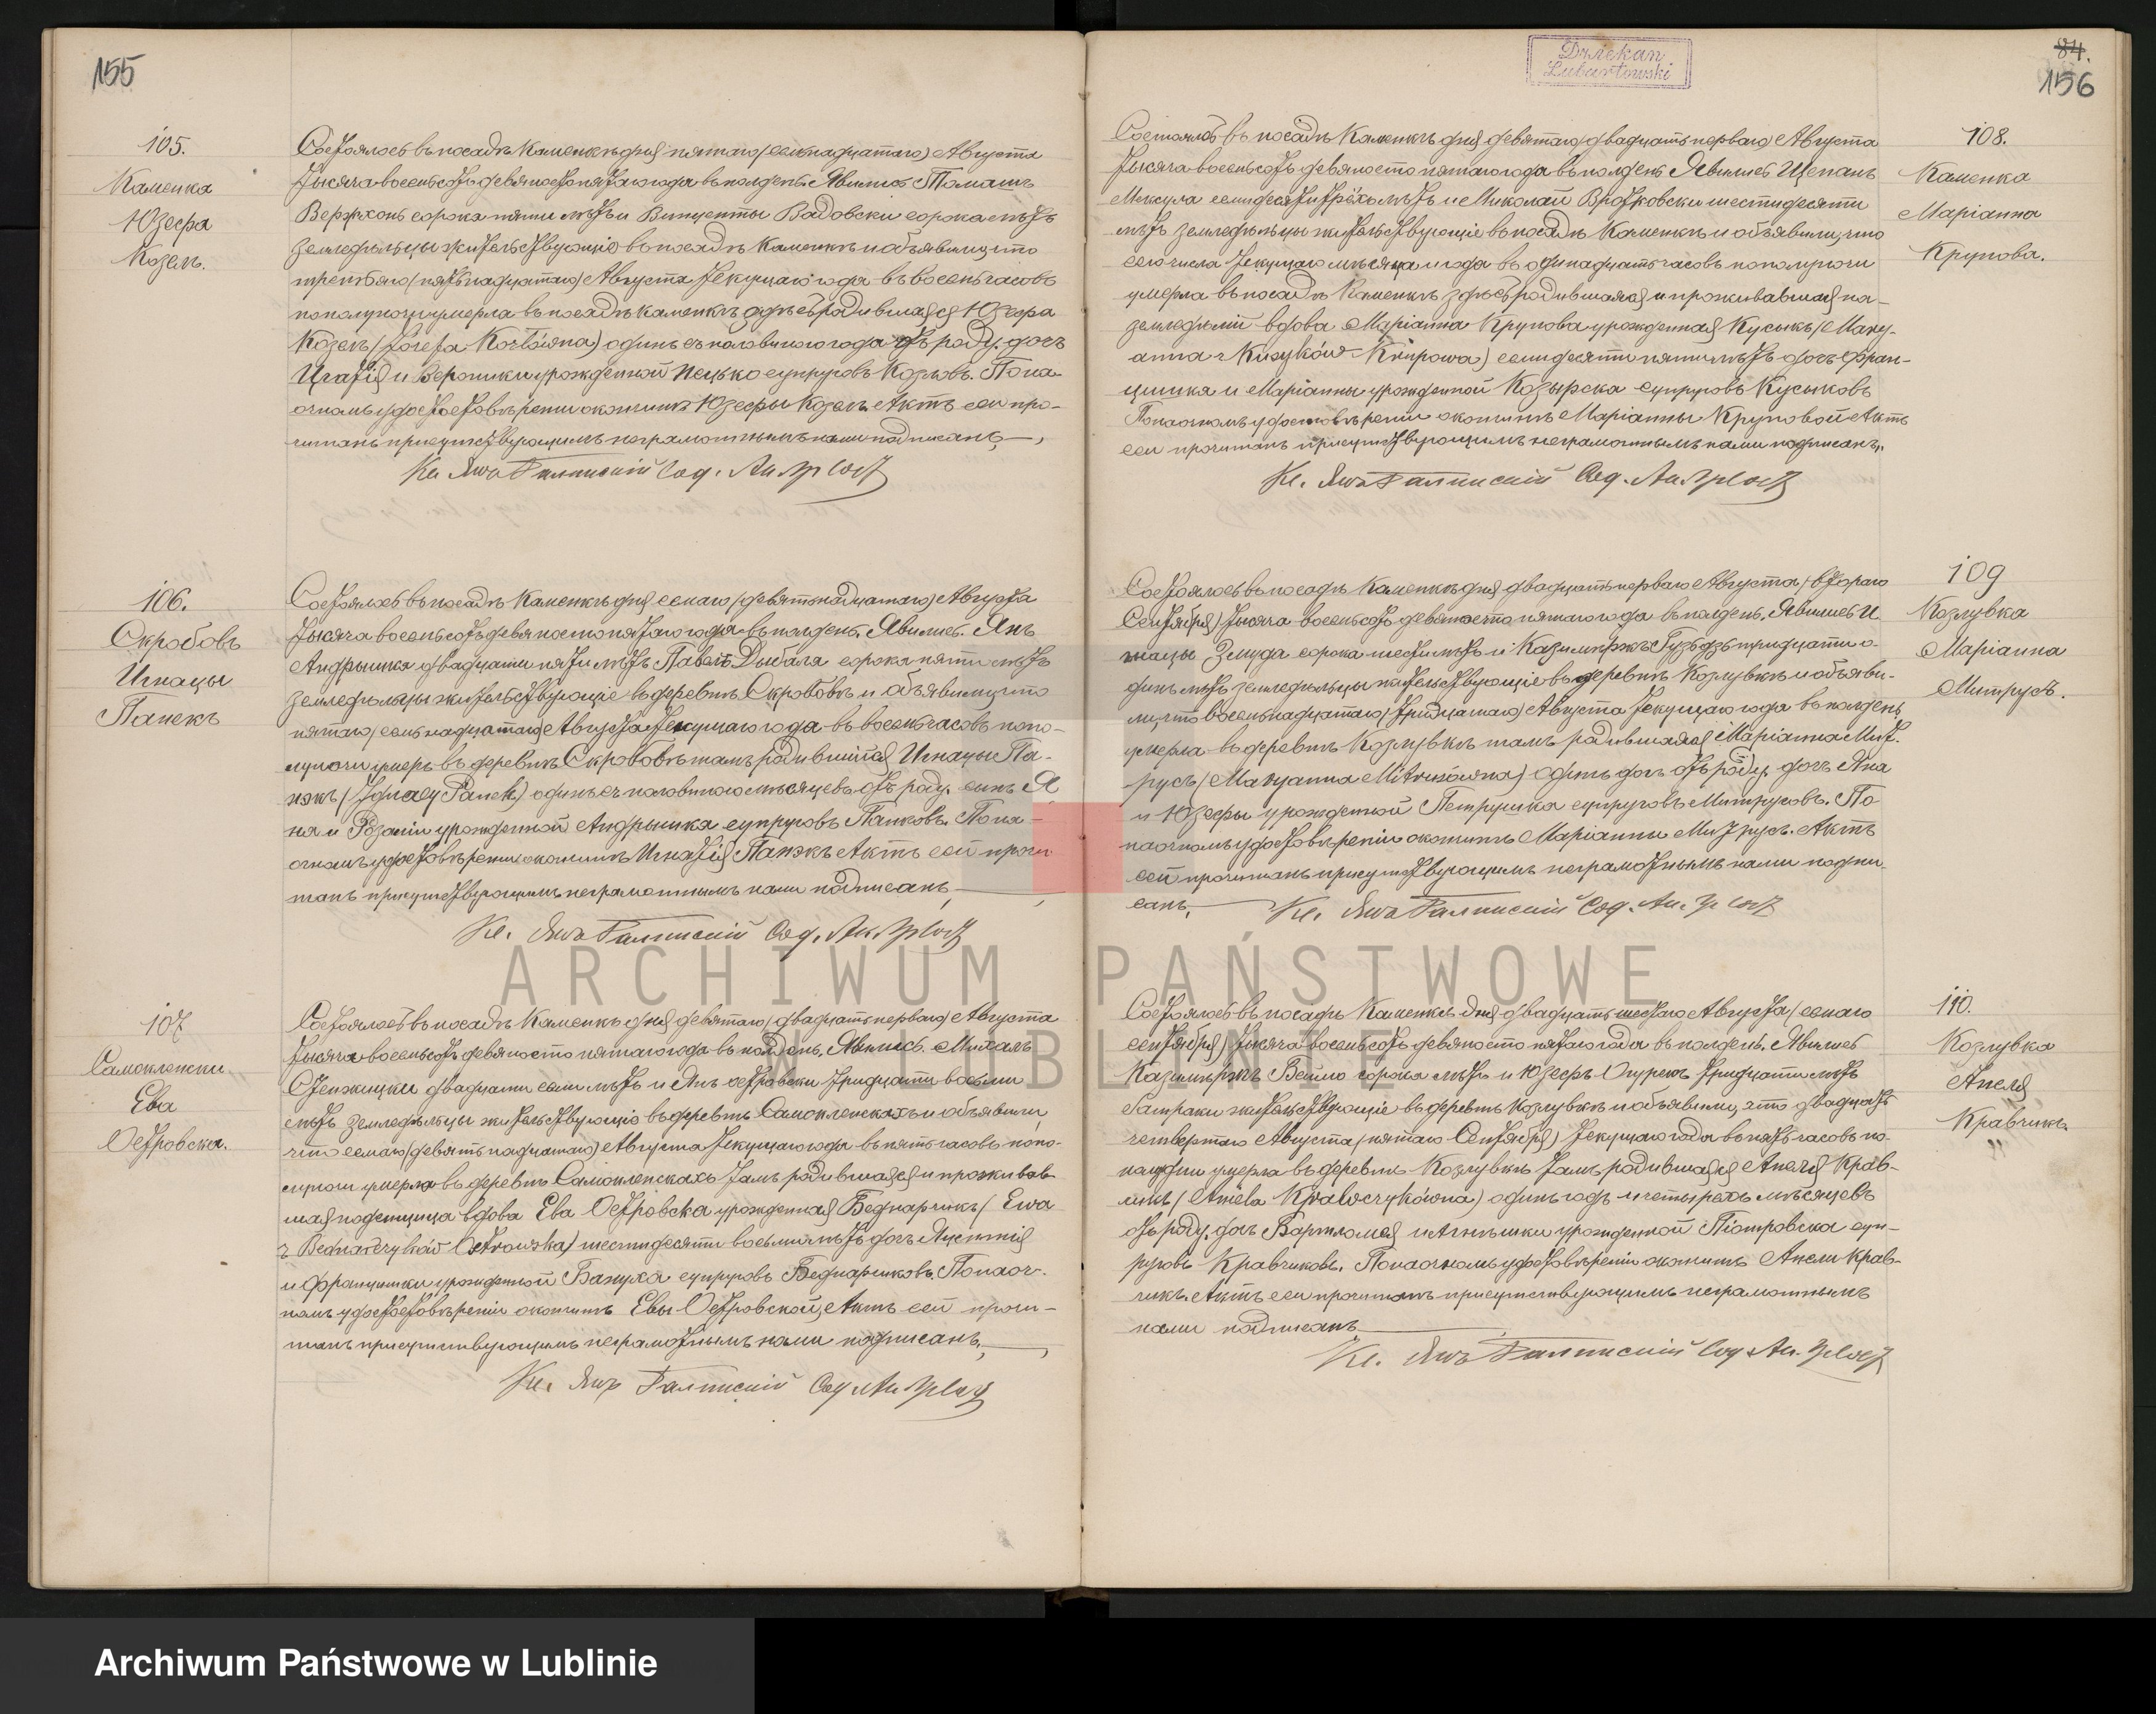 155
105.
Каменка
Юзефа
Козелъ.
Состоялось въ посадѣ Каменкѣ дня пятаго /семнадцатаго/ Августа
тысяча восемьсотъ девяносто пятаго года въ полдень. Явились Томашъ
Вержхонь сорока пяти лѣтъ и Винценты Вадовски сорока лѣтъ
земледѣльцы жительствующіе въ посадѣ Каменкѣ и объявили, что
третьяго /пятнадцатаго/ Августа текущаго года въ восемь часовъ
пополуночи умерла въ посадѣ Каменкѣ здѣсь родившаяся Юзефа
Козелъ /Józefa Kozłówna/ одинъ съ половиною года отъ роду, дочь
Игнатія и Вероники урожденной Пецько супруговъ Козловъ. По на-
очномъ удостовѣреніи о кончинѣ Юзефы Козелъ Актъ сей про-
читанъ присутствующимъ неграмотнымъ нами подписанъ,
Кс. Янъ Галинскій Сод. Ак. Гр. Сост
106.
Скробовъ
Игнацы
Панекъ
Состоялось въ посадѣ Каменкѣ дня седьмаго /девятнадцатаго/ Августа
тысяча восемьсотъ девяносто пятаго года въ полдень. Явились Янъ
Андрышка двадцати пяти лѣтъ Павелъ Дыбала сорока пяти лѣтъ
земледѣльцы жительствующіе въ деревнѣ Скробовѣ и объявили, что
пятаго /семнадцатаго/ Августа текущаго года въ восемь часовъ попо-
луночи умеръ въ деревнѣ Скробовѣ тамъ родившійся Игнацы Па-
нэкъ /Ignacy Panek/ одинъ съ половиною мѣсяцевъ отъ роду, сынъ Я-
на и Розаліи урожденной Андрышка супруговъ Панковъ. По на-
очномъ удостовѣреніи о кончинѣ Игнатія Панэкъ Актъ сей прочи-
танъ присутствующимъ неграмотнымъ нами подписанъ,
Кс. Янъ Галинскій Сод. Ак. Гр. Сост
107
Самокленски
Ева
Островска.
Состоялось въ посадѣ Каменкѣ дня девятаго /двадцать перваго/ Августа
тысяча восемьсотъ девяносто пятаго года въ полдень. Явились Михалъ
двадцати семи лѣтъ и Янъ Островски тридцати восьми
лѣтъ земледѣльцы жительствующіе въ деревнѣ Самокленскахъ и объявили,
что седьмаго /девятнадцатаго/ Августа текущаго года въ пять часовъ попо-
луночи умерла въ деревнѣ Самокленскахъ тамъ родившаяся и прожива-
шая поденщица вдова Ева Островска урожденная Беднарчикъ /Ewa
z Bednarczyków Ostrowska/ шестидесяти восьми лѣтъ дочь Яцентія
и Францишки урожденной Бануха супруговъ Беднарчиковъ. По наоч-
номъ удостовѣреніи о кончинѣ Евы Островской, Актъ сей прочи-
танъ присутствующимъ неграмотнымъ нами подписанъ,
Кс. Янъ Галинскій Сод. Ак. Гр. Сост
Dziekan
Lubartowski
84.
156
108.
Каменка
Маріанна
Крупова.
Состоялось въ посадѣ Каменкѣ дня девятаго /двадцать перваго/ Августа
тысяча восемьсотъ девяносто пятаго года въ полдень Явились Щепанъ
Микула семидесяти трёхъ лѣтъ и Миколай Вротковски шестидесяти
лѣтъ земледѣльцы жительствующіе въ посадѣ Каменкѣ и объявили, что
сего числа текущаго мѣсяца и года въ одинадцать часовъ пополуночи
умерла въ посадѣ Каменкѣ здѣсь родившаяся и проживавшая на
земледѣліи вдова Маріанна Крупова урожденная Кусыкъ /Mary-
anna z Kusyków Krupowa/ семидесяти пяти лѣтъ дочь Фран-
цишка и Маріанны урожденной Козырска супруговъ Кусыковъ
По наочномъ удостовѣреніи о кончинѣ Маріанны Круповой Актъ
сей прочитанъ присутствующимъ неграмотнымъ нами подписанъ.
Кс. Янъ Галинскій Сод. Ак. Гр. Сост
109
Козлувка
Маріанна
Митрусъ.
Состоялось въ посадѣ Каменкѣ дня двадцать перваго Августа /втораго
Сентября/ тысяча восемьсотъ девяносто пятаго года въ полдень. Явились И-
гнацы Жмуда сорока шести лѣтъ и Казимиржъ Гуздзъ тридцати о-
динъ лѣтъ земледѣльцы жительствующіе въ деревнѣ Козлувкѣ и объяви-
ли, что восемнадцатаго /тридцатаго/ Августа текущаго года въ полдень
умерла въ деревнѣ Козлувкѣ тамъ родившаяся Маріанна Мит-
русъ /Maryanna Mitrusówna/ одинъ годъ отъ роду, дочь Яна
и Юзефы урожденной Петрушка супруговъ Митрусовъ. По
наочномъ удостовѣреніи о кончинѣ Маріанны Митрусъ Актъ
сей прочитанъ присутствующимъ неграмотнымъ нами подпи-
санъ,
Кс. Янъ Галинскій Сод. Ак. Гр. Сост
110.
Козлувка
Анеля
Кравчикъ.
Состоялось въ посадѣ Каменкѣ дня двадцать шестаго Августа /седьмаго
Сентября/ тысяча восемьсотъ девяносто пятаго года въ полдень. Явились
Казимиржъ Вейло сорока лѣтъ и Юзефъ Огурекъ тридцати лѣтъ
батраки жительствующіе въ деревнѣ Козлувкѣ и объявили, что двадцать
четвертаго Августа /пятаго Сентября/ текущаго года въ пять часовъ по-
полудни умерла въ деревнѣ Козлувкѣ тамъ родившаяся Анеля Крав-
чикъ /Aniela Krawczykówna/ одинъ годъ и четырехъ мѣсяцевъ
отъ роду, дочь Бартломея и Агнѣшки урожденной Піотровска суп-
руговъ Кравчиковъ. По наочномъ удостовѣреніи о кончинѣ Анели Крав-
чикъ Актъ сей прочитанъ присутствующимъ неграмотнымъ
нами подписанъ
Кс. Янъ Галинскій Сод. Ак. Гр. Сост
ARCHIWUM PAŃSTWOWE
W LUBLINIE
Archiwum Państwowe w Lublinie